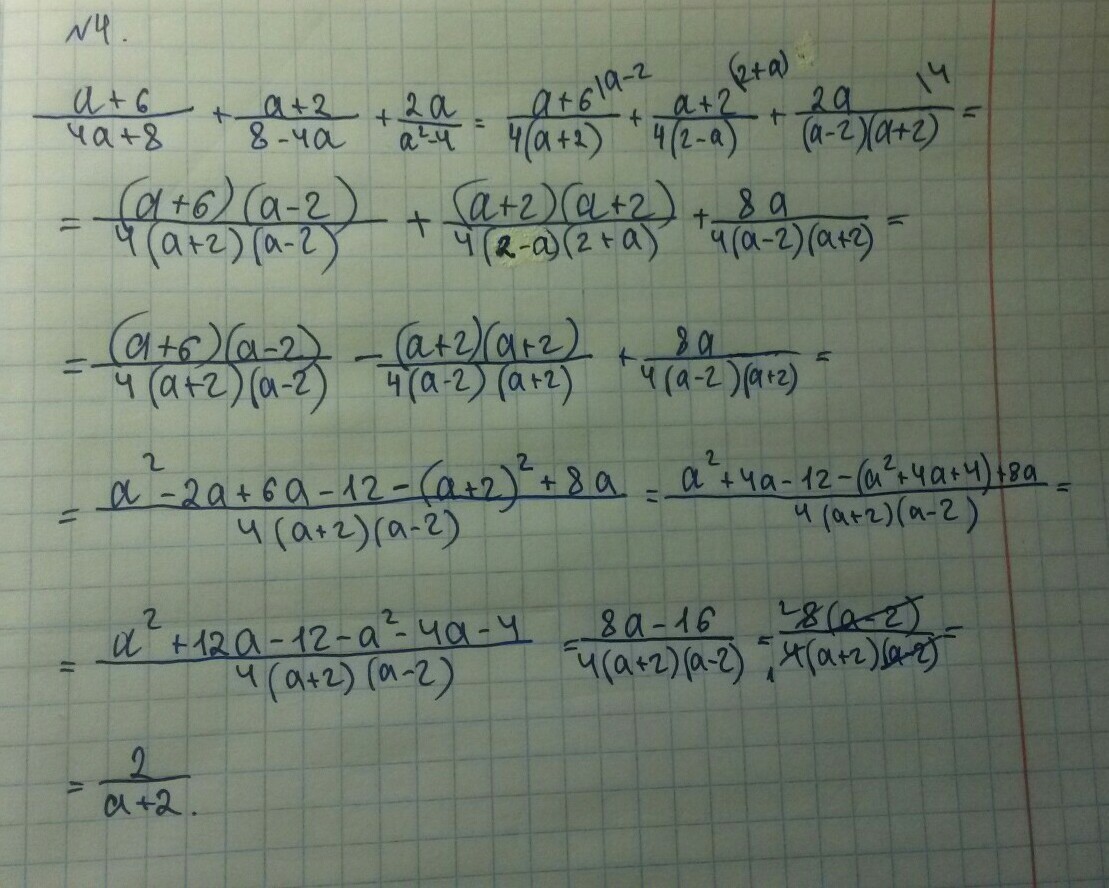 №4.
(a+6)/(4a+8) + (a+2)/(8-4a) + 2a/(a²-4) = (a+6)/(4(a+2)) |a-2 + (a+2)/(4(2-a)) (2+a) + 2a/((a-2)(a+2)) \4 =
= ((a+6)(a-2))/(4(a+2)(a-2)) + ((a+2)(a+2))/(4(2-a)(2+a)) + 8a/(4(a-2)(a+2)) =
= ((a+6)(a-2))/(4(a+2)(a-2)) - ((a+2)(a+2))/(4(a-2)(a+2)) + 8a/(4(a-2)(a+2)) =
= (a²-2a+6a-12-(a+2)²+8a)/(4(a+2)(a-2)) = (a²+4a-12-(a²+4a+4)+8a)/(4(a+2)(a-2)) =
= (a²+12a-12-a²-4a-4)/(4(a+2)(a-2)) = (8a-16)/(4(a+2)(a-2)) = ²8(a-2)/(₁4(a+2)(a-2)) =
= 2/(a+2).